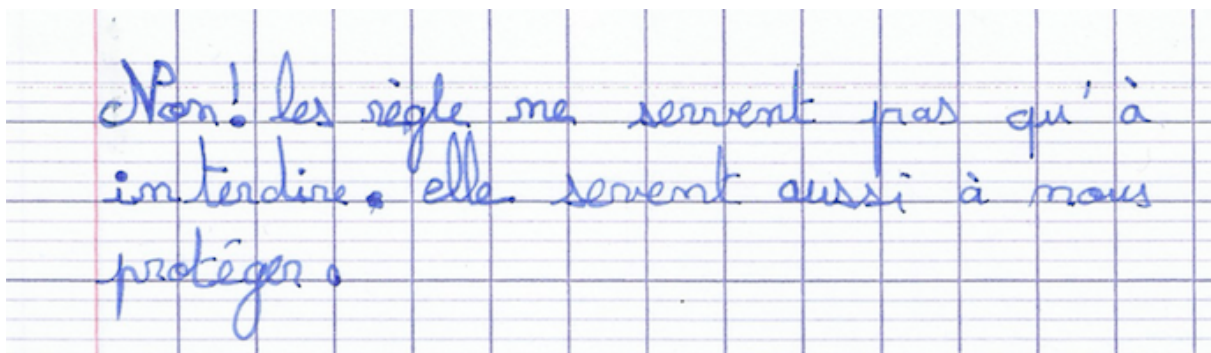 Non! les règle ne servent pas qu'à
interdire. elle servent aussi à nous
protéger.